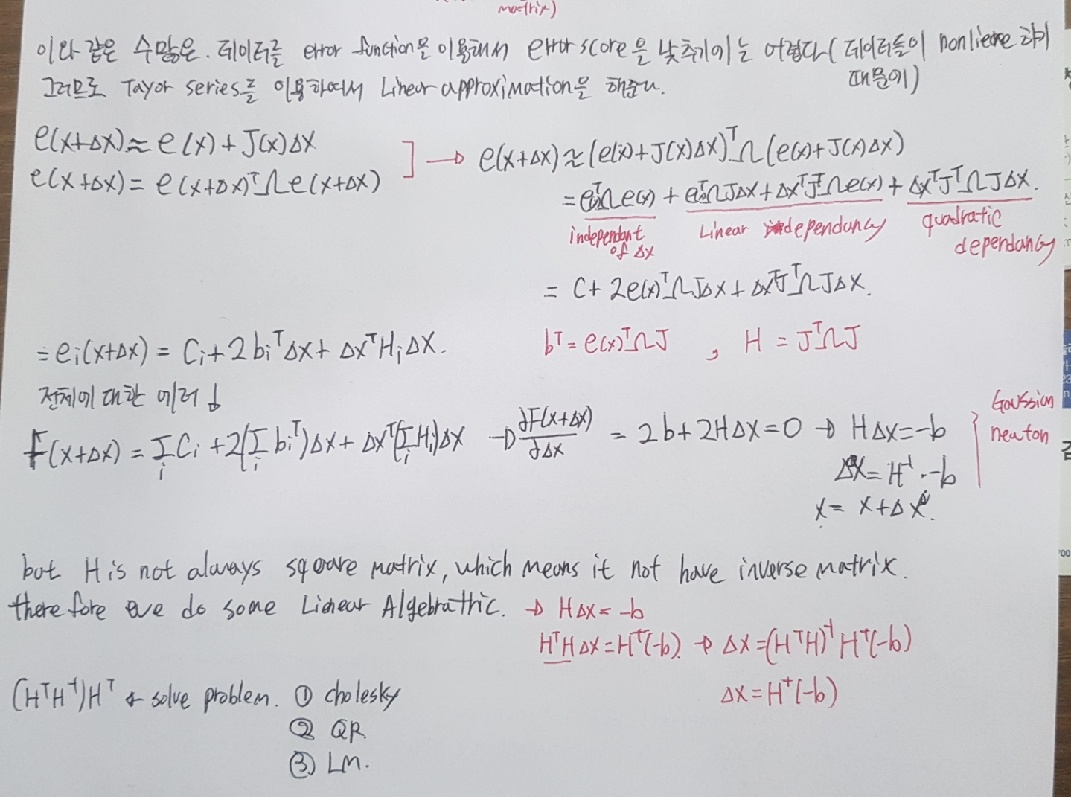 matrix)
이와 같은 수많은 데이터를 error function을 이용해서 error score을 낮추기에는 어렵다 (데이터들이 nonlinear 하기
때문에)
그러므로 Tayor series를 이용하여서 Linear approximation을 해준다.
e(x+Δx) ≈ e(x) + J(x)Δx
e(x+Δx) = e(x+Δx)ᵀΩe(x+Δx)
] → e(x+Δx) ≈ (e(x)+J(x)Δx)ᵀΩ(e(x)+J(x)Δx)
= e(x)ᵀΩe(x) + e(x)ᵀΩJΔx + ΔxᵀJᵀΩe(x) + ΔxᵀJᵀΩJΔx.
independant of Δx
Linear dependancy
quadratic dependancy
= C + 2e(x)ᵀΩJΔx + ΔxᵀJᵀΩJΔx.
= eᵢ(x+Δx) = Cᵢ + 2bᵢᵀΔx + ΔxᵀHᵢΔx.
bᵀ = e(x)ᵀΩJ , H = JᵀΩJ
전체에 대한 에러 ↓
F(x+Δx) = ΣᵢCᵢ + 2(Σᵢbᵢᵀ)Δx + Δxᵀ(ΣᵢHᵢ)Δx → ∂F(x+Δx)/∂Δx = 2b + 2HΔx = 0 → HΔx = -b
Δx = H⁻¹·-b
x = x+Δx.
Gaussian
newton
but H is not always square matrix, which means it not have inverse matrix.
therefore we do some Linear Algebrathic. → HΔx = -b
HᵀHΔx = Hᵀ(-b) → Δx = (HᵀH)⁻¹Hᵀ(-b)
Δx = H⁺(-b)
(HᵀH⁻¹)Hᵀ solve problem. ① cholesky
② QR
③ LM.